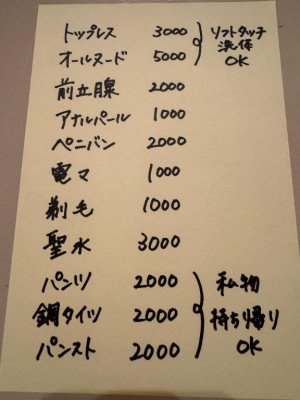 トップレス 3000
オールヌード 5000
ソフトタッチ
洗体
OK
前立腺 2000
アナルパール 1000
ペニバン 2000
電マ 1000
剃毛 1000
聖水 3000
パンツ 2000
網タイツ 2000
パンスト 2000
私物
持ち帰り
OK